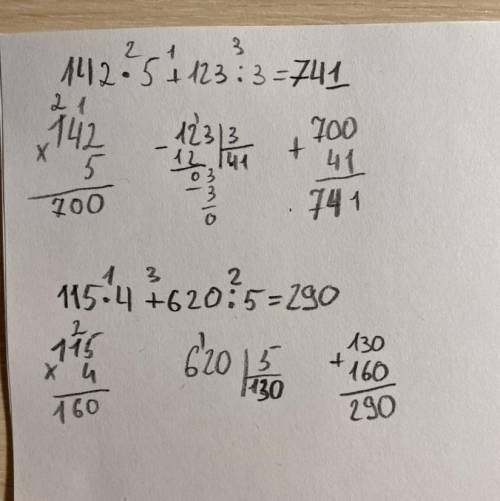 2 1 3
142·5+123:3=741
2 1
× 142
5
700
- 123 | 3
12 | 41
03
- 3
0
+ 700
41
741
1 3 2
115·4+620:5=290
2
× 115
4
160
620 | 5
130
+ 130
160
290